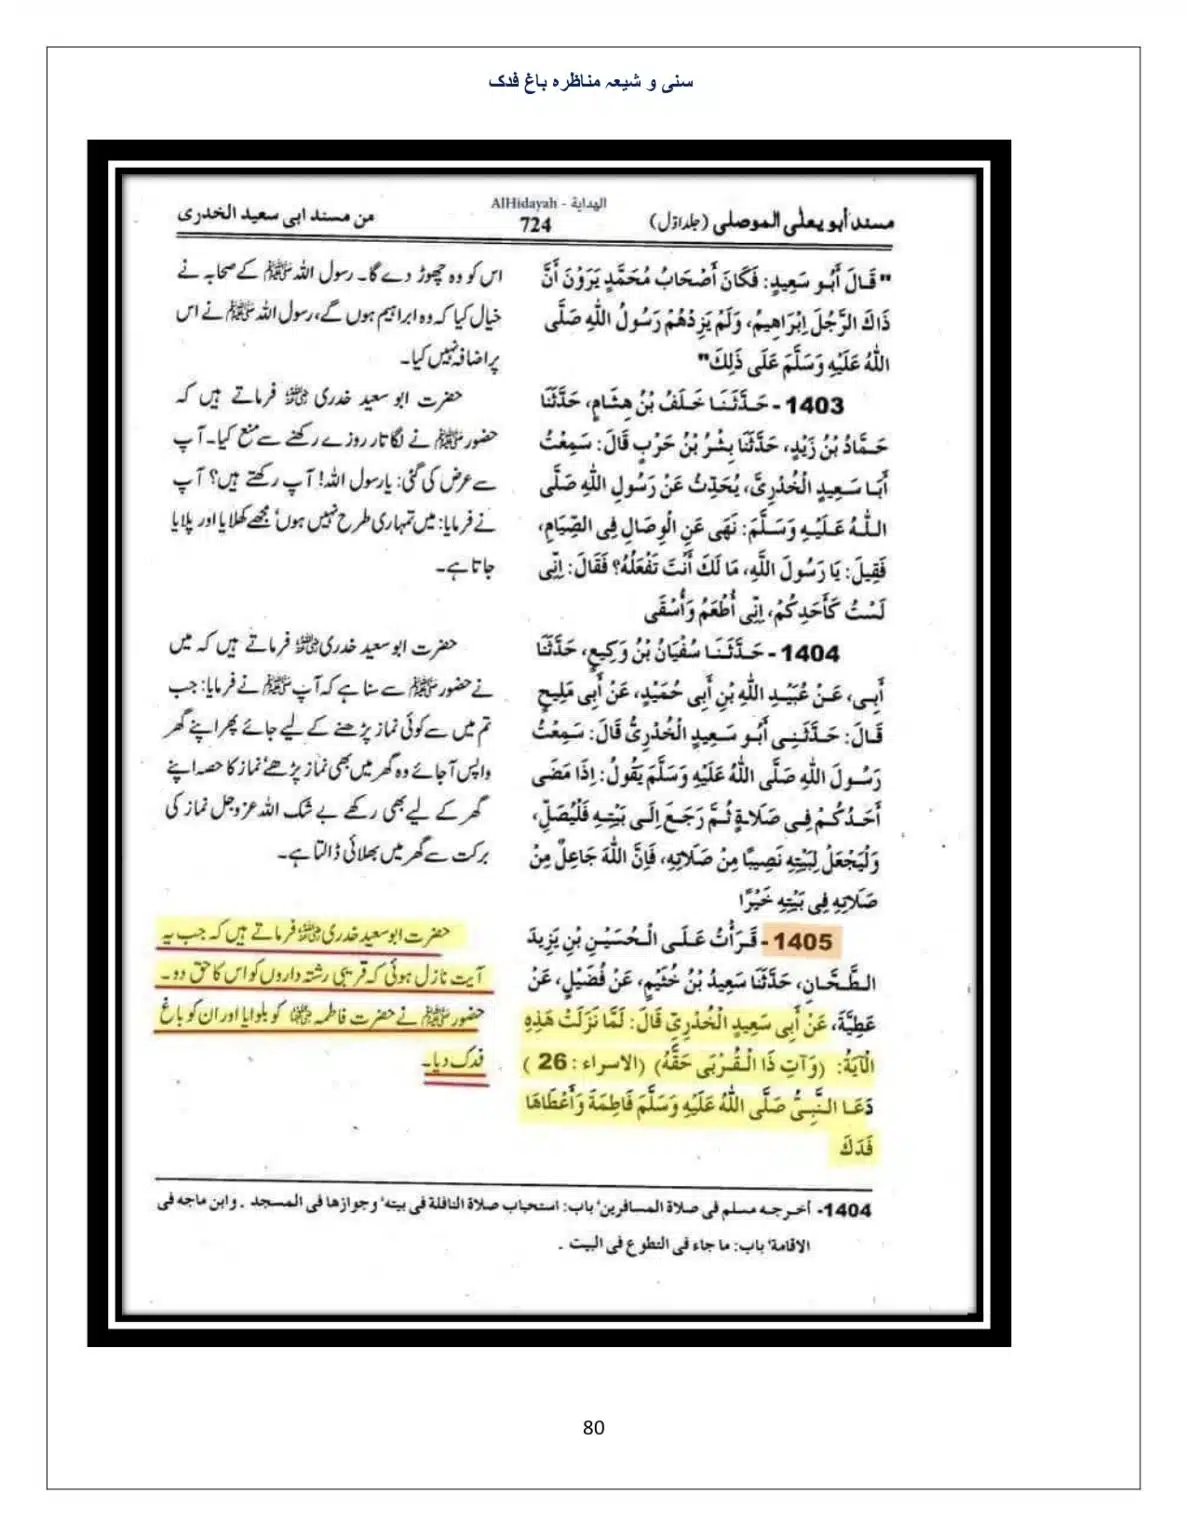 سنی و شیعہ مناظرہ باغ فدک
مسند أبو يعلى الموصلي (جلد اوّل)
AlHidayah - الهداية
724
من مسند ابی سعید الخدری
"قَالَ أَبُو سَعِيدٍ: فَكَانَ أَصْحَابُ مُحَمَّدٍ يَرَوْنَ أَنَّ
ذَاكَ الرَّجُلَ إِبْرَاهِيمُ، وَلَمْ يَزِدْهُمْ رَسُولُ اللَّهِ صَلَّى
اللَّهُ عَلَيْهِ وَسَلَّمَ عَلَى ذَلِكَ"
1403 - حَدَّثَنَا خَلَفُ بْنُ هِشَامٍ، حَدَّثَنَا
حَمَّادُ بْنُ زَيْدٍ، حَدَّثَنَا بِشْرُ بْنُ حَرْبٍ قَالَ: سَمِعْتُ
أَبَا سَعِيدٍ الْخُدْرِيَّ، يُحَدِّثُ عَنْ رَسُولِ اللَّهِ صَلَّى
اللَّهُ عَلَيْهِ وَسَلَّمَ: نَهَى عَنِ الْوِصَالِ فِى الصِّيَامِ،
فَقِيلَ: يَا رَسُولَ اللَّهِ، مَا لَكَ أَنْتَ تَفْعَلُهُ؟ فَقَالَ: إِنِّى
لَسْتُ كَأَحَدِكُمْ، إِنِّى أُطْعَمُ وَأُسْقَى
1404 - حَدَّثَنَا سُفْيَانُ بْنُ وَكِيعٍ، حَدَّثَنَا
أَبِى، عَنْ عُبَيْدِ اللَّهِ بْنِ أَبِى حُمَيْدٍ، عَنْ أَبِى مَلِيحٍ
قَالَ: حَدَّثَنِى أَبُو سَعِيدٍ الْخُدْرِىُّ قَالَ: سَمِعْتُ
رَسُولَ اللَّهِ صَلَّى اللَّهُ عَلَيْهِ وَسَلَّمَ يَقُولُ: إِذَا مَضَى
أَحَدُكُمْ فِى صَلَاةٍ ثُمَّ رَجَعَ إِلَى بَيْتِهِ فَلْيُصَلِّ،
وَلْيَجْعَلْ لِبَيْتِهِ نَصِيبًا مِنْ صَلَاتِهِ، فَإِنَّ اللَّهَ جَاعِلٌ مِنْ
صَلَاتِهِ فِى بَيْتِهِ خَيْرًا
1405 - قَرَأْتُ عَلَى الْحُسَيْنِ بْنِ يَزِيدَ
الطَّحَّانِ، حَدَّثَنَا سَعِيدُ بْنُ خُثَيْمٍ، عَنْ فُضَيْلٍ، عَنْ
عَطِيَّةَ، عَنْ أَبِى سَعِيدٍ الْخُدْرِىِّ قَالَ: لَمَّا نَزَلَتْ هَذِهِ
الْآيَةُ: (وَآتِ ذَا الْقُرْبَى حَقَّهُ) (الاسراء: 26)
دَعَا النَّبِىُّ صَلَّى اللَّهُ عَلَيْهِ وَسَلَّمَ فَاطِمَةَ وَأَعْطَاهَا
فَدَكَ
اس کو وہ چھوڑ دے گا۔ رسول اللہ ﷺ کے صحابہ نے
خیال کیا کہ وہ ابراہیم ہوں گے، رسول اللہ ﷺ نے اس
پر اضافہ نہیں کیا۔
حضرت ابو سعید خدری رضی اللہ عنہ فرماتے ہیں کہ
حضور ﷺ نے لگاتار روزے رکھنے سے منع کیا۔ آپ
سے عرض کی گئی: یارسول اللہ! آپ رکھتے ہیں؟ آپ
نے فرمایا: میں تمہاری طرح نہیں ہوں، مجھے کھلایا اور پلایا
جاتا ہے۔
حضرت ابو سعید خدری رضی اللہ عنہ فرماتے ہیں کہ میں
نے حضور ﷺ سے سنا ہے کہ آپ ﷺ نے فرمایا: جب
تم میں سے کوئی نماز پڑھنے کے لیے جائے پھر اپنے گھر
واپس آجائے وہ گھر میں بھی نماز پڑھے، نماز کا حصہ اپنے
گھر کے لیے بھی رکھے بے شک اللہ عزوجل نماز کی
برکت سے گھر میں بھلائی ڈالتا ہے۔
حضرت ابو سعید خدری رضی اللہ عنہ فرماتے ہیں کہ جب یہ
آیت نازل ہوئی کہ قریبی رشتہ داروں کو اس کا حق دو۔
حضور ﷺ نے حضرت فاطمہ رضی اللہ عنہا کو بلوایا اور ان کو باغ
فدک دیا۔
1404- أخرجه مسلم فى صلاة المسافرين، باب: استحباب صلاة النافلة فى بيته، وجوازها فى المسجد . وابن ماجه فى
الاقامة، باب: ما جاء فى التطوع فى البيت .
80